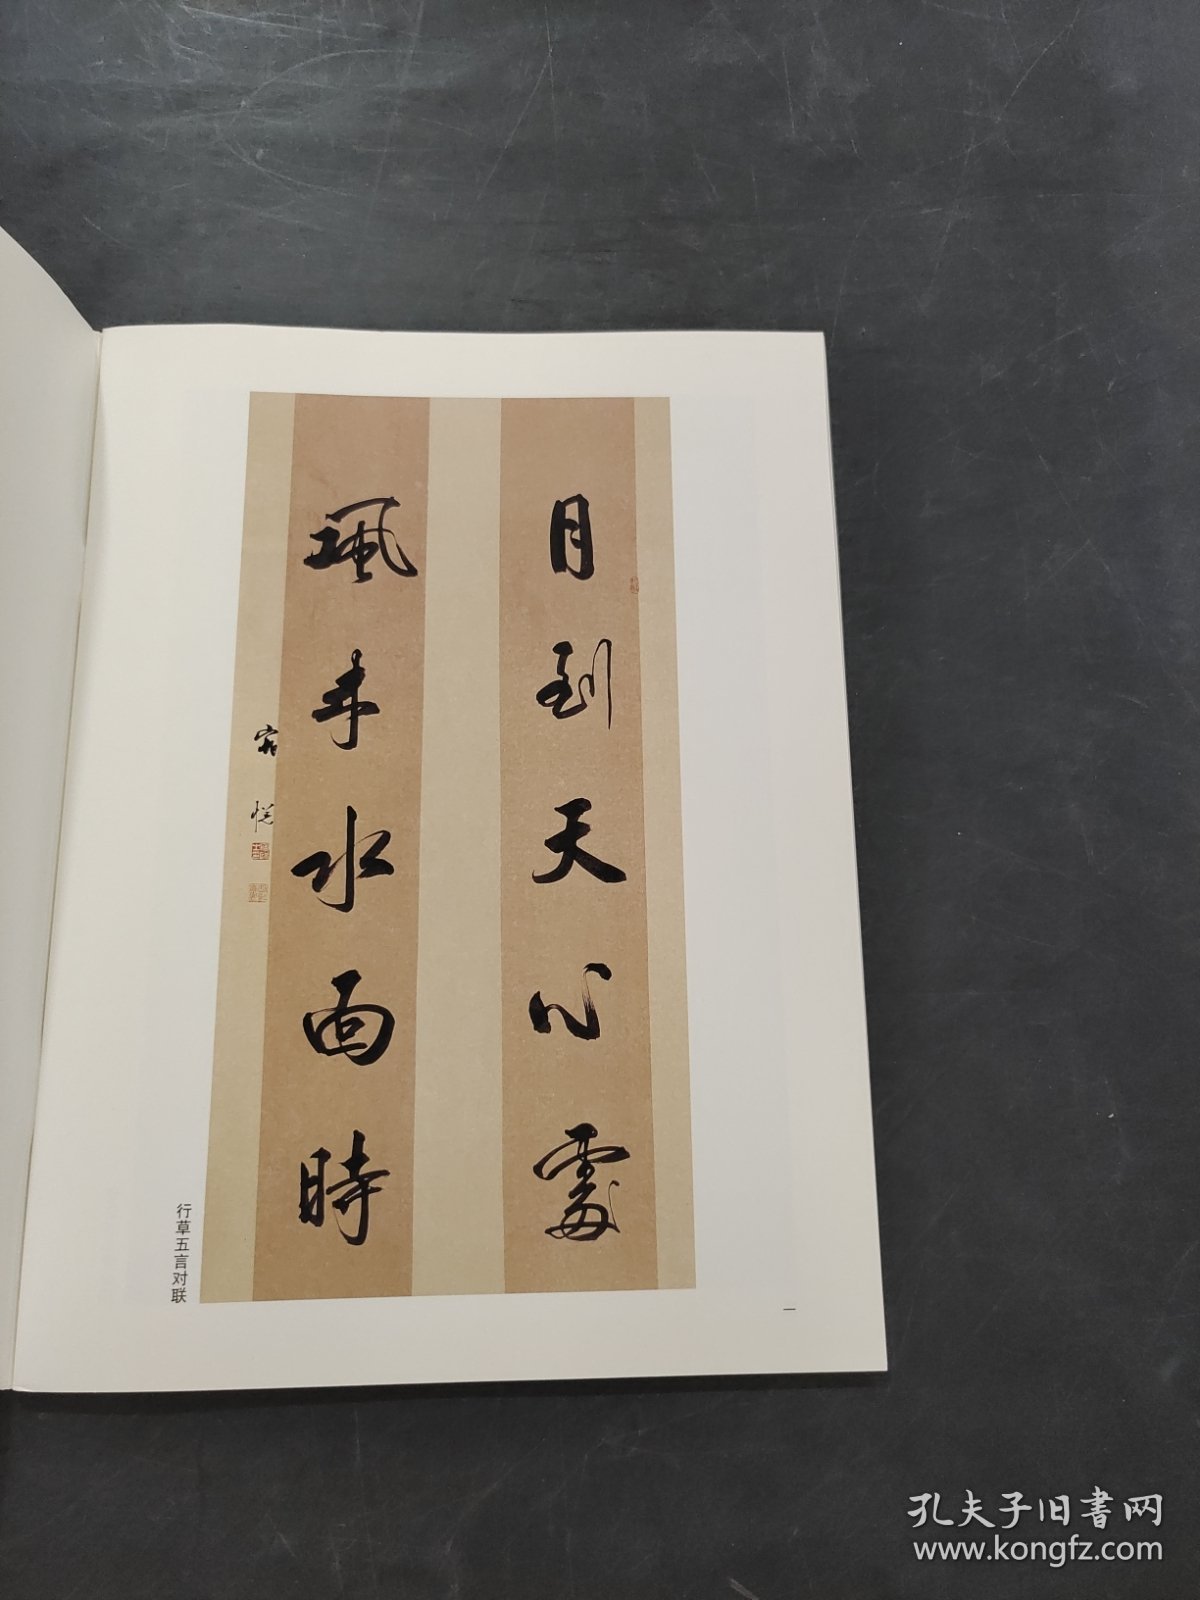 月到天心處
風来水面時
宿悦
行草五言对联
一
孔夫子旧書网
www.kongfz.com